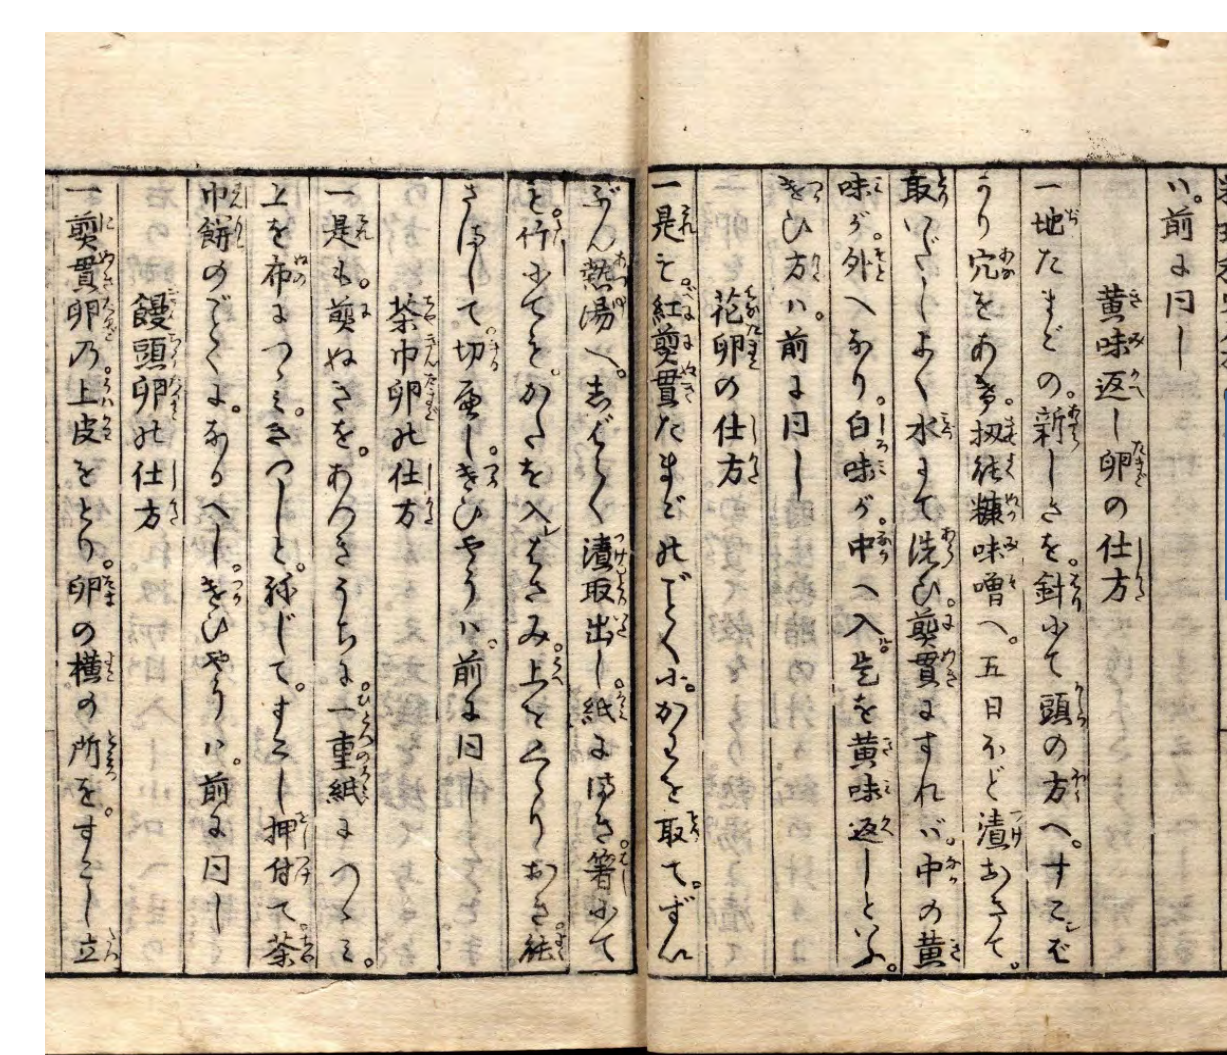 ハ。前に同し
黄味返し卵の仕方
一地たまごの。新しきを。針にて頭の方へ。すこしば
うり穴をあけ。扨 糠味噌へ。五日ほど漬おきて。
取いだしよく水にて洗ひ。煎貫にすれバ。中の黄
味が。外へなり。白味が。中へ入ル。是を黄味返しといふ。
つかひ方ハ。前に同し
花卵の仕方
一是も。紅煎貫たまごのごとくに。かわを取て。ずん
ぶん熱湯へ。しばらく漬取出し。紙にまき箸にて
を。竹にてを。かたを入レはさみ。上をくゝりおき
さまして。切重し。つかひやうハ。前に同し
茶巾卵の仕方
一是も。煎ぬきを。あつきうちに。一重紙につゝミ。
上を布につゝミ。きつしと。ねじて。すこし押付て。茶
巾餅のごとくに。なるへし。つかひやうハ。前に同し
饅頭卵の仕方
一煎貫卵乃。上皮をとり。卵の横の所を。すこし立